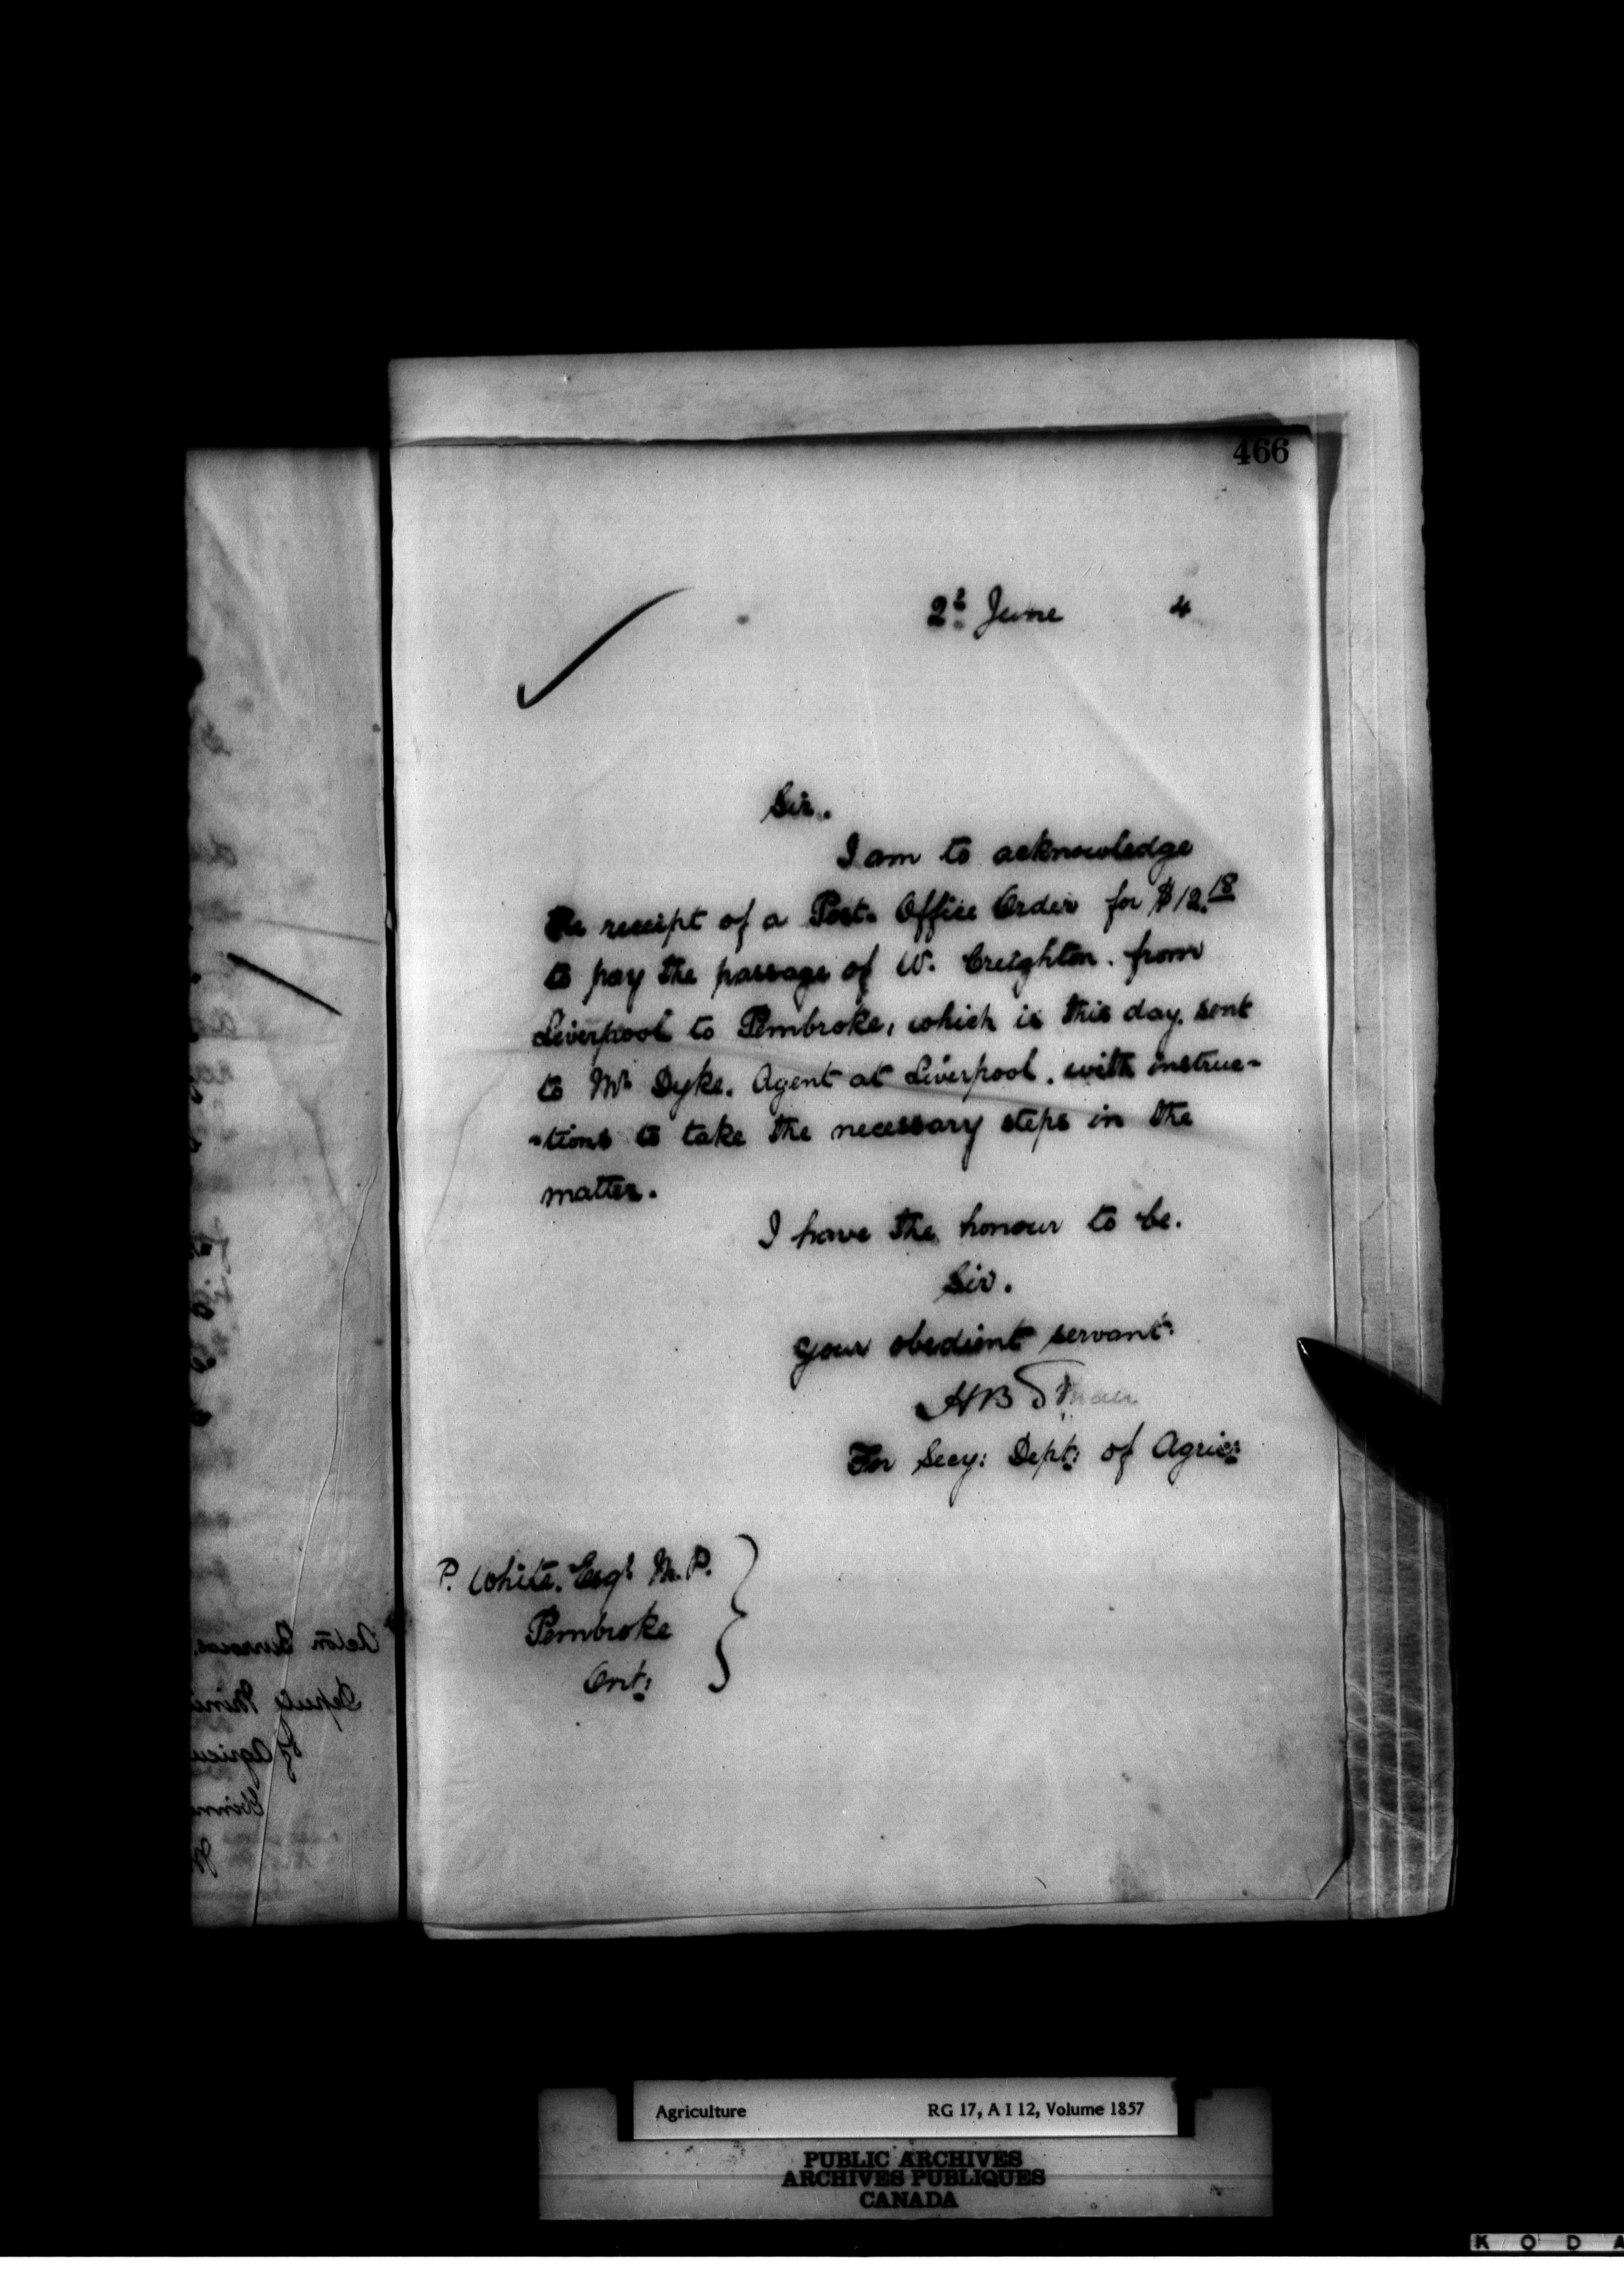 466
2d June 4
Sir.
I am to acknowledge
the receipt of a Post. Office Order for $12.18
to pay the passage of W. Creighton. from
Liverpool to Pembroke, which is this day. sent
to Mr Dyke. Agent at Liverpool. with instruc-
-tions to take the necessary steps in the
matter.
I have the honour to be.
Sir.
your obedient servant.
HB Small
For Secy: Dept: of Agric:
P. White. Esqr M.P.
Pembroke
Ont:
Acton Burrows.
Deputy
of
Agriculture
RG 17, A I 12, Volume 1857
PUBLIC ARCHIVES
ARCHIVES PUBLIQUES
CANADA
KODA